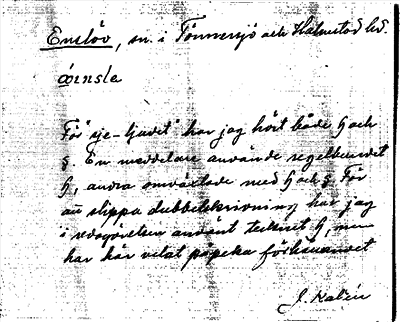 Enslöv, sn. i Tönnersjö och Halmstad hd.
œnsla
För "sje-ljudet" har jag hört både ɧ och
ʂ. En meddelare använde regelbundet
ɧ, andra omväxlade med ɧ och ʂ. För
att slippa dubbelskrivning har jag
i redogörelsen använt tecknet ɧ, men
har här velat påpeka förhållandet
J. Kalén